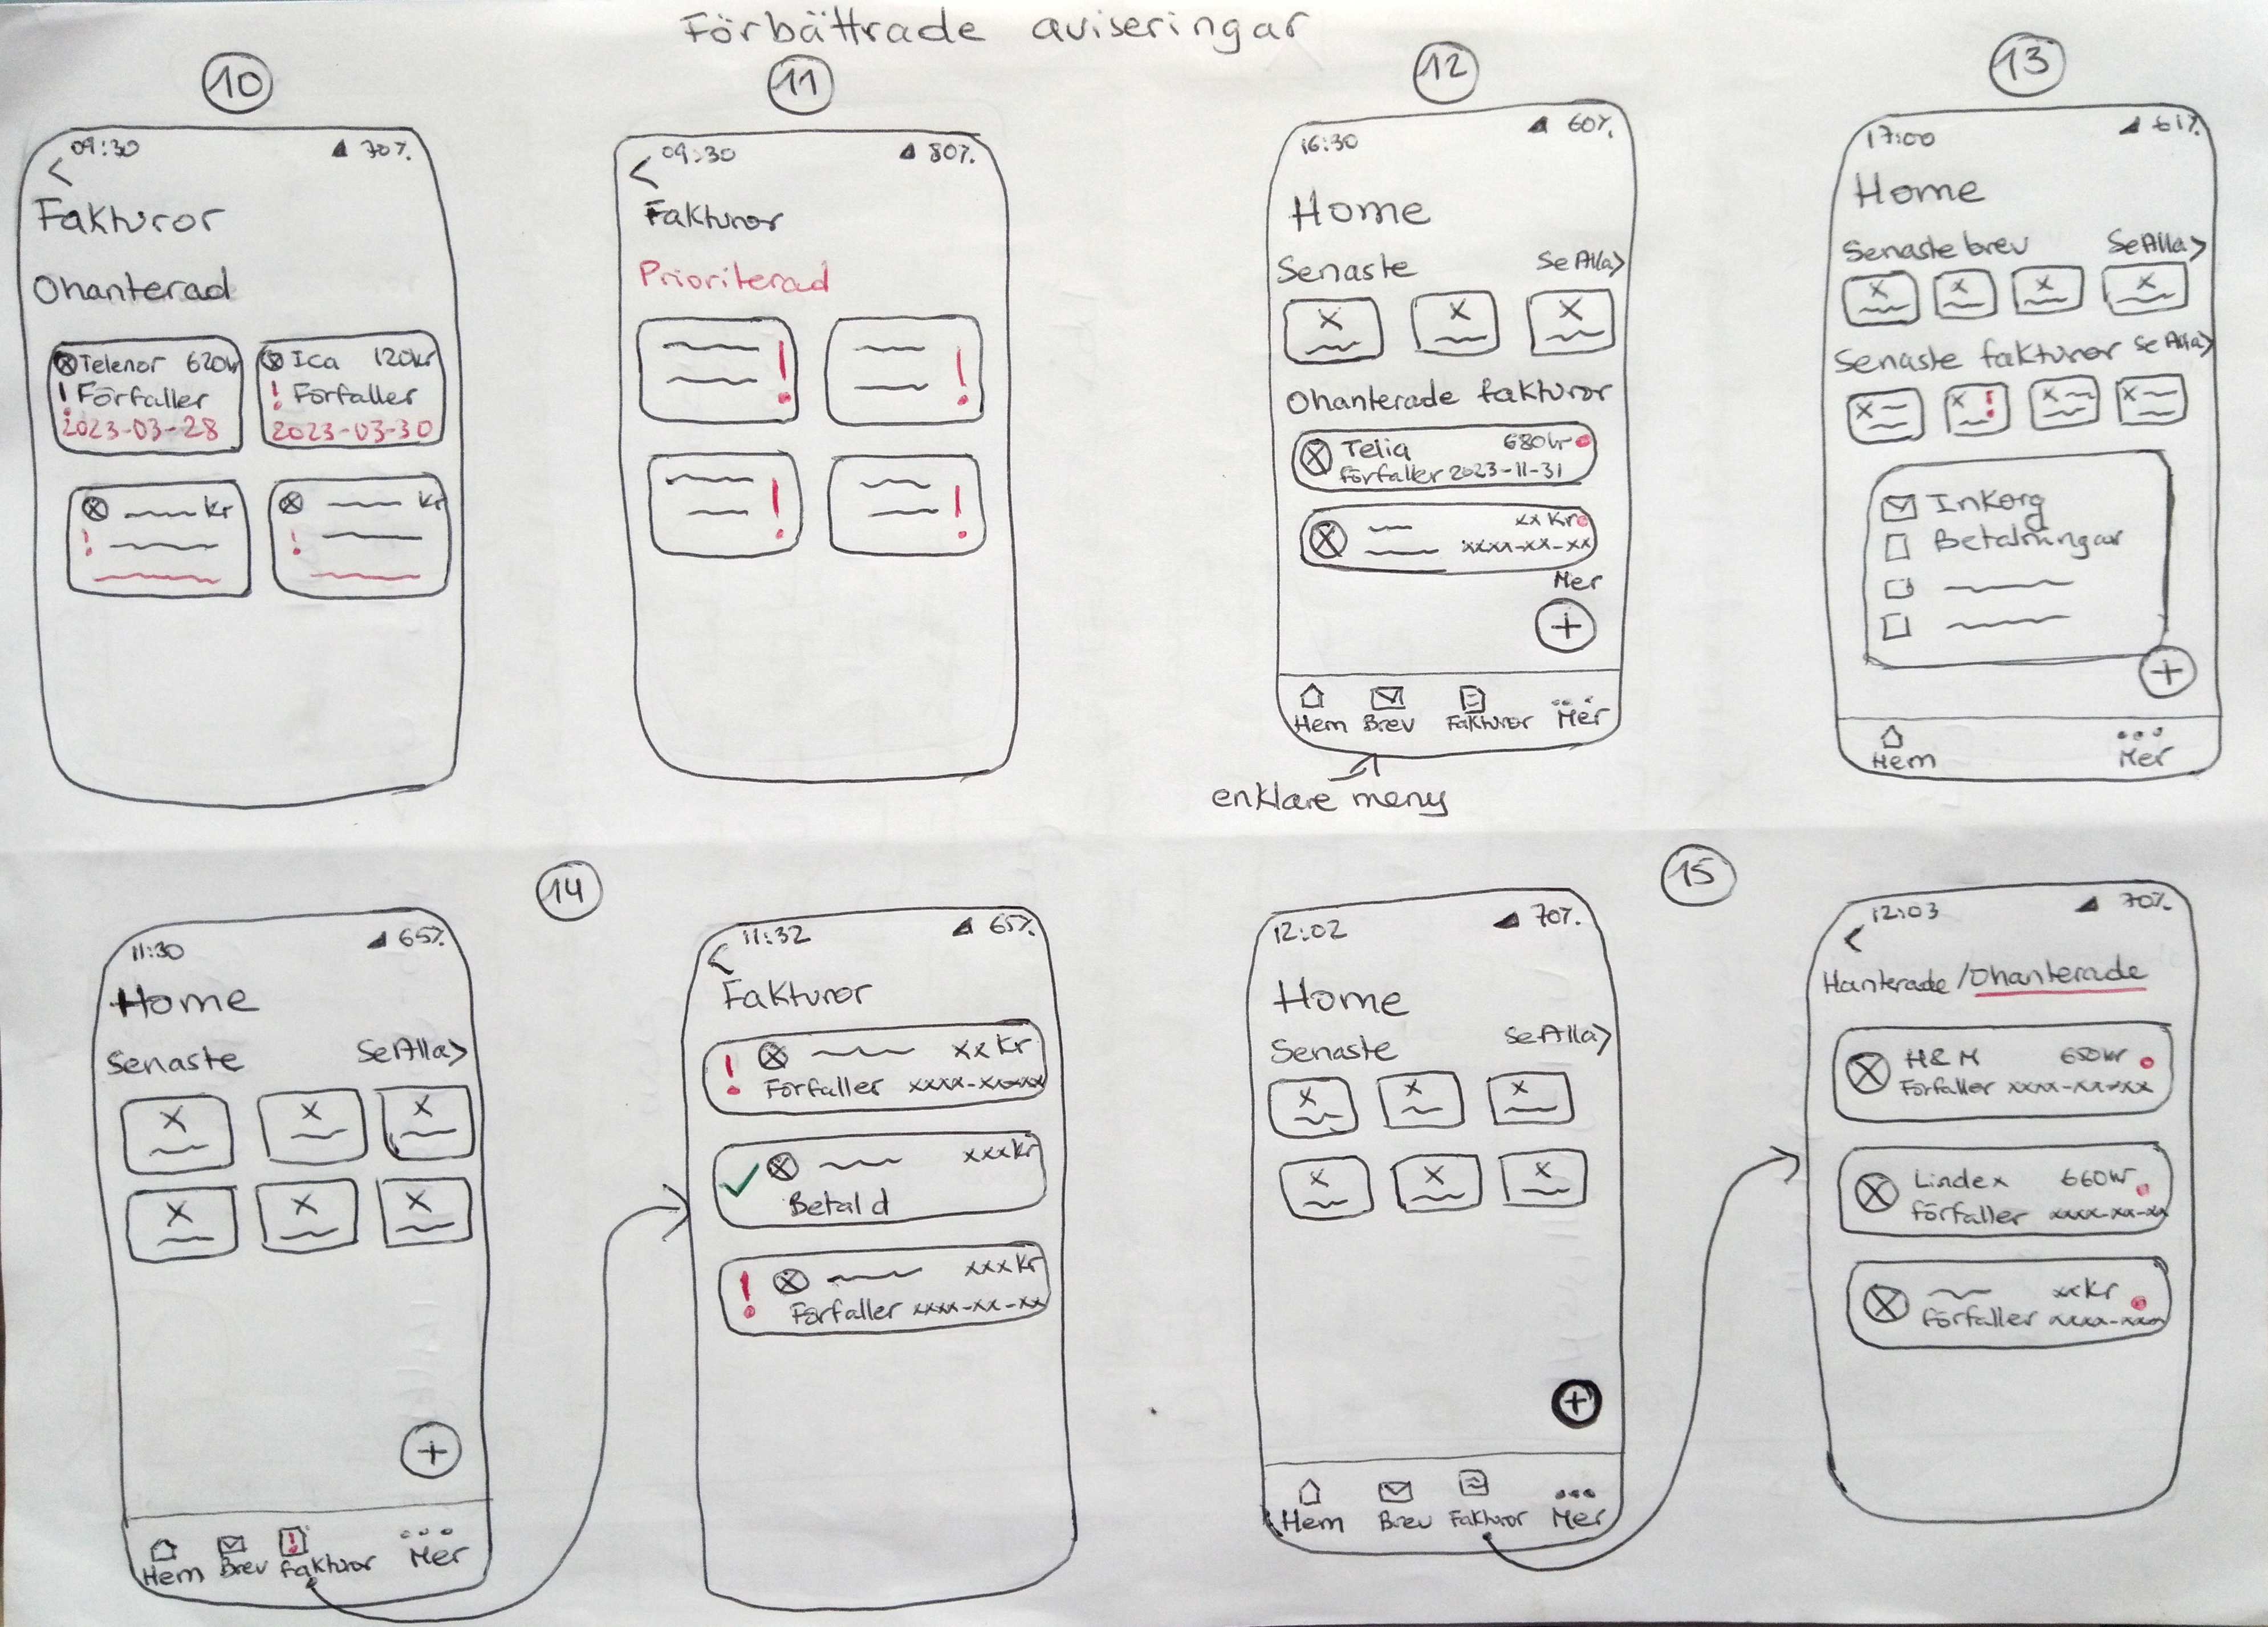 Förbättrade aviseringar
10
09:30 70%
<
Fakturor
Ohanterad
Telenor 620kr
! Förfaller
2023-03-28
Ica 120kr
! Förfaller
2023-03-30
kr
!
kr
!
11
09:30 80%
<
Fakturor
Prioriterad
!
!
!
!
12
16:30 60%
Home
Senaste Se Alla>
X X X
Ohanterade fakturor
Telia 680kr
Förfaller 2023-11-31
xx Kr
xxxx-xx-xx
Mer
+
Hem Brev Fakturor Mer
enklare meny
13
17:00 61%
Home
Senaste brev Se Alla>
X X X X
Senaste fakturor Se Alla>
X X ! X X
Inkorg
Betalningar
+
Hem Mer
14
11:30 65%
Home
Senaste Se Alla>
X X X
X X X
+
!
Hem Brev Fakturor Mer
11:32 65%
<
Fakturor
! xx Kr
Förfaller xxxx-xx-xx
xxx Kr
Betald
! xxx Kr
Förfaller xxxx-xx-xx
15
12:02 70%
Home
Senaste Se Alla>
X X X
X X X
+
Hem Brev Fakturor Mer
12:03 70%
<
Hanterade / Ohanterade
H&M 650kr
Förfaller xxxx-xx-xx
Lindex 660kr
Förfaller xxxx-xx-xx
xx Kr
Förfaller